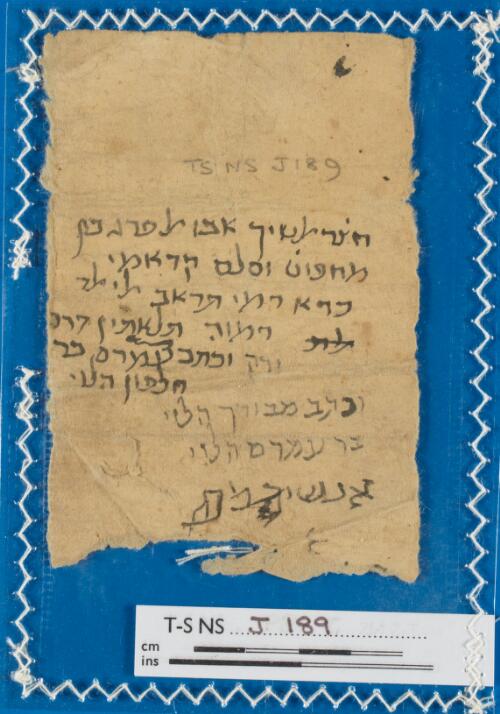 TS NS J189
חצר אלשיך אבו אלפרג בן
מחפוט וסלם קדאמי
כרא רמי תראב
תלת רמוה תלאתין דרה
ורק וכתב עמרם בר
חלפון הלוי
וכתב מבורך הלוי
בר עמרם הלוי
T-S NS J 189
cm
ins